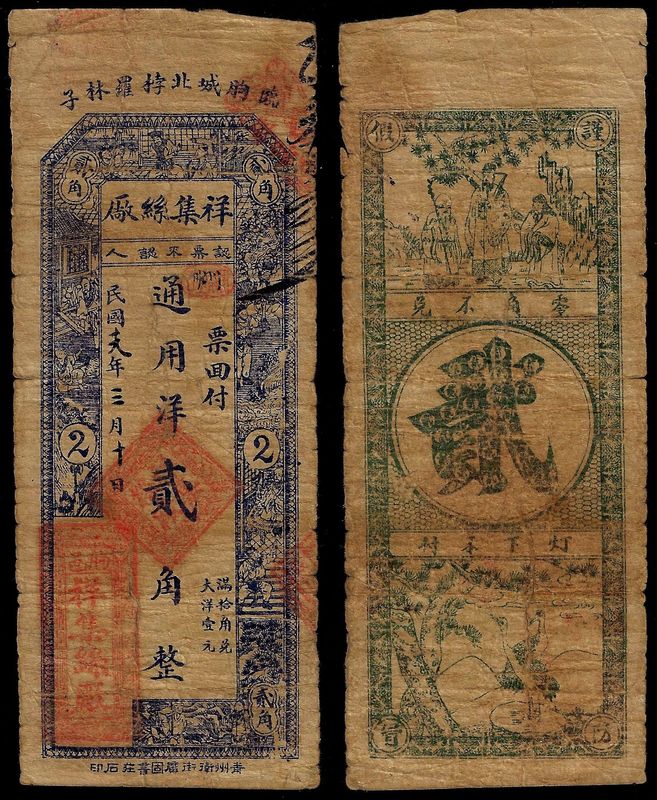 臨朐城北桲羅林子
貳角
貳角
祥集絲厰
認票不認人
票面付
通用洋貳角整
民國十八年三月十日
2
2
滿拾角兌
大洋壹元
祥集絲厰
貳角
青州衛街廣固書莊石印
謹
假
零角不兌
貳
灯下不付
防
冒